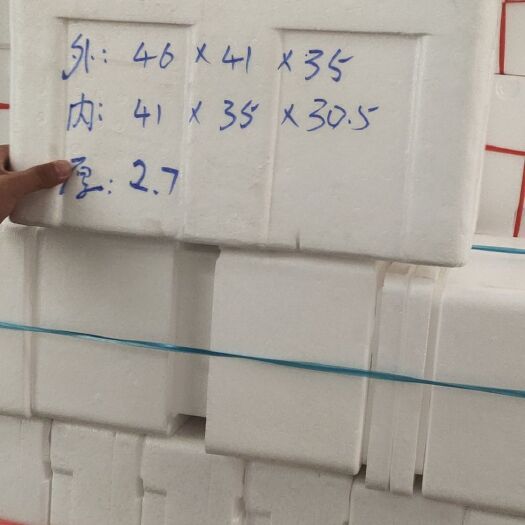 外: 46 × 41 × 35
内: 41 × 35 × 30.5
厚: 2.7